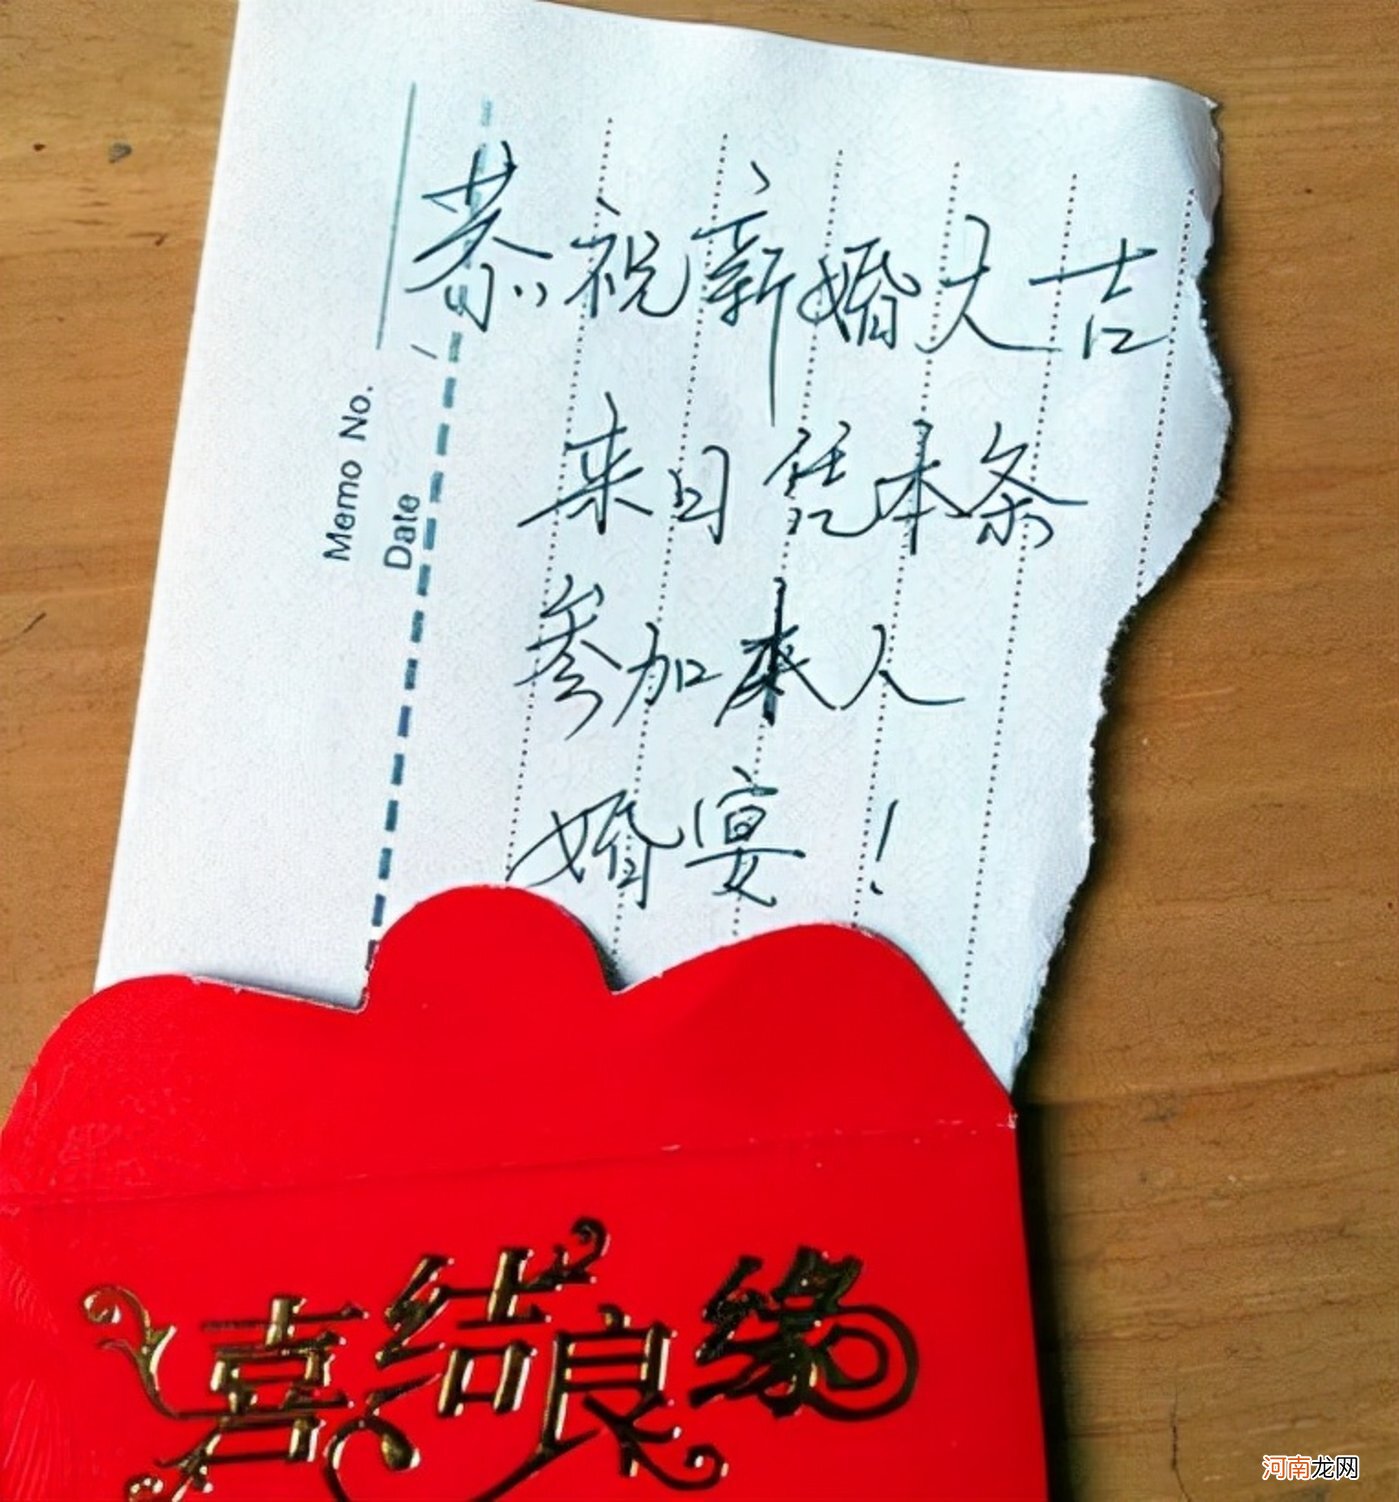 Memo No.
Date
恭祝新婚大吉
来日凭本条
参加本人
婚宴！
喜结良缘
河南龙网